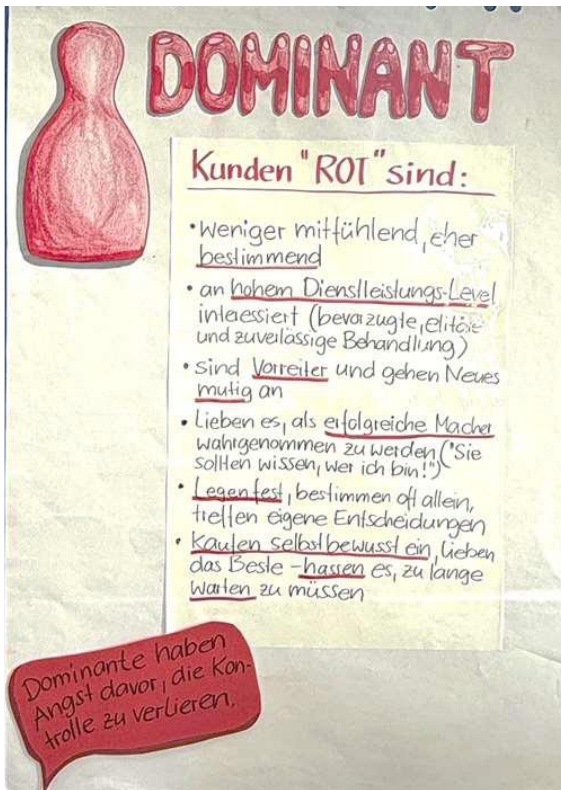 DOMINANT
Kunden "ROT" sind:
• weniger mitfühlend, eher
bestimmend
• an hohem Dienstleistungs-Level
interessiert (bevorzugte, elitäre
und zuverlässige Behandlung)
• sind Vorreiter und gehen Neues
mutig an
• Lieben es, als erfolgreiche Macher
wahrgenommen zu werden ("Sie
sollten wissen, wer ich bin!")
• Legen fest, bestimmen oft allein,
treffen eigene Entscheidungen
• Kaufen selbstbewusst ein, lieben
das Beste - hassen es, zu lange
warten zu müssen
Dominante haben
Angst davor, die Kon-
trolle zu verlieren.